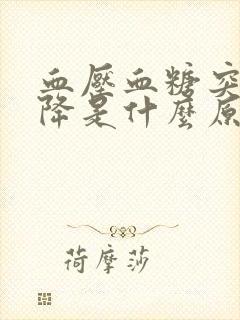 血壓血糖突
降是什麼原
荷摩莎